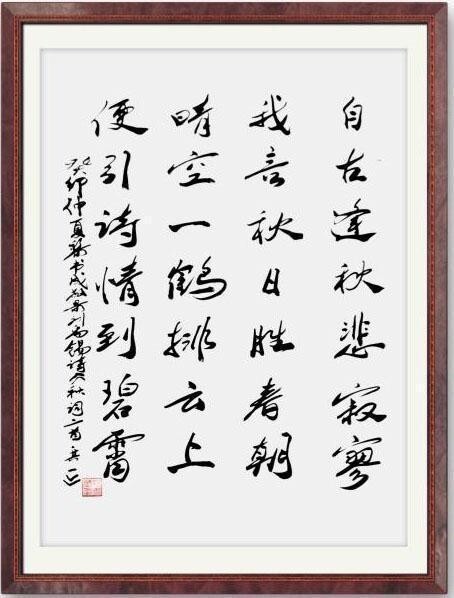 自古逢秋悲寂寥
我言秋日胜春朝
晴空一鶴排云上
便引詩情到碧霄
癸卯仲夏 刘禹锡诗 秋词一首